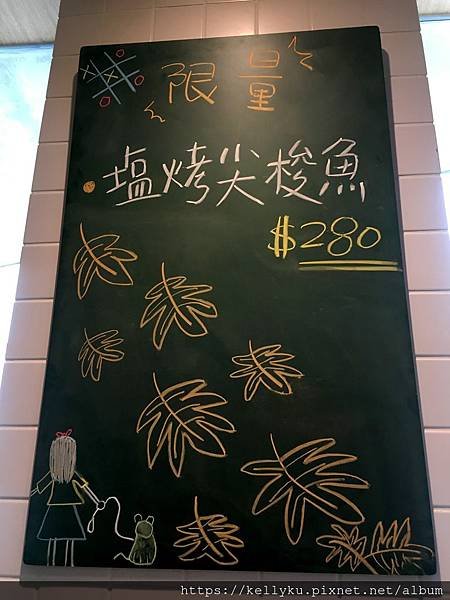 限量
塩烤尖梭魚
$280
https://kellyku.pixnet.net/album